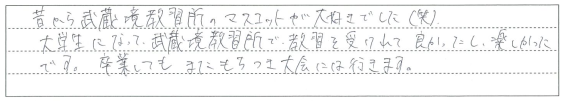 昔から武蔵境教習所のマスコットが大好きでした(笑)
大学生になって、武蔵境教習所で、教習を受けれて良かったし、楽しかった
です。卒業してもまたもちつき大会には行きます。